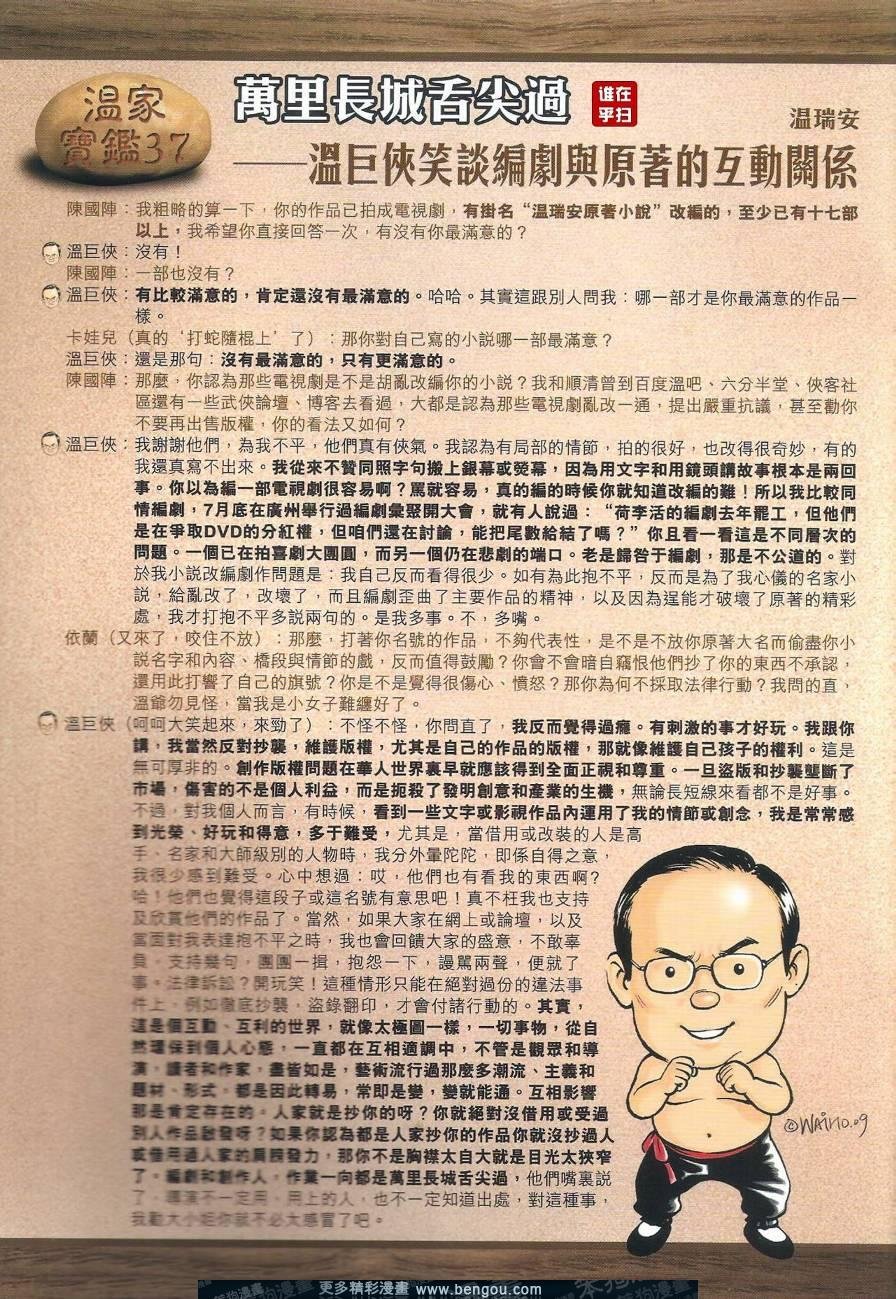 溫家
寶鑑37
萬里長城舌尖過
谁在
乎扫
温瑞安
——溫巨俠笑談編劇與原著的互動關係
陳國陣：我粗略的算一下，你的作品已拍成電視劇，有掛名“溫瑞安原著小說”改編的，至少已有十七部
以上，我希望你直接回答一次，有沒有你最滿意的？
溫巨俠：沒有！
陳國陣：一部也沒有？
溫巨俠：有比較滿意的，肯定還沒有最滿意的。哈哈。其實這跟別人問我：哪一部才是你最滿意的作品一
樣。
卡娃兒（真的‘打蛇隨棍上’了）：那你對自己寫的小說哪一部最滿意？
溫巨俠：還是那句：沒有最滿意的，只有更滿意的。
陳國陣：那麼，你認為那些電視劇是不是胡亂改編你的小說？我和順清曾到百度溫吧、六分半堂、俠客社
區還有一些武俠論壇、博客去看過，大都是認為那些電視劇亂改一通，提出嚴重抗議，甚至勸你
不要再出售版權，你的看法又如何？
溫巨俠：我謝謝他們，為我不平，他們真有俠氣。我認為有局部的情節，拍的很好，也改得很奇妙，有的
我還真寫不出來。我從來不贊同照字句搬上銀幕或熒幕，因為用文字和用鏡頭講故事根本是兩回
事。你以為編一部電視劇很容易啊？罵就容易，真的編的時候你就知道改編的難！所以我比較同
情編劇，7月底在廣州舉行過編劇彙聚開大會，就有人說過：“荷李活的編劇去年罷工，但他們
是在爭取DVD的分紅權，但咱們還在討論，能把尾數給結了嗎？”你且看一看這是不同層次的
問題。一個已在拍喜劇大團圓，而另一個仍在悲劇的端口。老是歸咎于編劇，那是不公道的。對
於我小說改編劇作問題是：我自己反而看得很少。如有為此抱不平，反而是為了我心儀的名家小
說，給亂改了，改壞了，而且編劇歪曲了主要作品的精神，以及因為逞能才破壞了原著的精彩
處，我才打抱不平多說兩句的。是我多事。不，多嘴。
依蘭（又來了，咬住不放）：那麼，打著你名號的作品，不夠代表性，是不是不放你原著大名而偷盡你小
說名字和內容、橋段與情節的戲，反而值得鼓勵？你會不會暗自竊恨他們抄了你的東西不承認，
還用此打響了自己的旗號？你是不是覺得很傷心、憤怒？那你為何不採取法律行動？我問的直，
溫爺勿見怪，當我是小女子難纏好了。
溫巨俠（呵呵大笑起來，來勁了）：不怪不怪，你問直了，我反而覺得過癮。有刺激的事才好玩。我跟你
講，我當然反對抄襲，維護版權，尤其是自己的作品的版權，那就像維護自己孩子的權利。這是
無可厚非的。創作版權問題在華人世界裏早就應該得到全面正視和尊重。一旦盜版和抄襲壟斷了
市場，傷害的不是個人利益，而是扼殺了發明創意和產業的生機，無論長短線來看都不是好事。
不過，對我個人而言，有時候，看到一些文字或影視作品內運用了我的情節或創念，我是常常感
到光榮、好玩和得意，多于難受，尤其是，當借用或改裝的人是高
手、名家和大師級別的人物時，我分外暈陀陀，即係自得之意，
我很少感到難受。心中想過：哎，他們也有看我的東西啊？
哈！他們也覺得這段子或這名號有意思吧！真不枉我也支持
及欣賞他們的作品了。當然，如果大家在網上或論壇，以及
當面對我表達抱不平之時，我也會回饋大家的盛意，不敢辜
負，支持幾句，團團一揖，抱怨一下，謾罵兩聲，便就了
事。法律訴訟？開玩笑！這種情形只能在絕對過份的違法事
件上，例如徹底抄襲，盜錄翻印，才會付諸行動的。其實，
這是個互動、互利的世界，就像太極圖一樣，一切事物，從自
然環保到個人心態，一直都在互相適調中，不管是觀眾和導
演，讀者和作家，盡皆如是，藝術流行過那麼多潮流、主義和
題材、形式，都是因此轉易，常即是變，變就能通。互相影響
那是肯定存在的。人家就是抄你的呀？你就絕對沒借用或受過
別人作品啟發呀？如果你認為都是人家抄你的作品你就沒抄過人
或借用過人家的肩膀發力，那你不是胸襟太自大就是目光太狹窄
了。編劇和創作人，作業一向都是萬里長城舌尖過，他們嘴裏說
了，導演不一定用，用上的人，也不一定知道出處，對這種事，
我勸大小姐你就不必太感冒了吧。
©WAiNO.09
更多精彩漫畫 www.bengou.com